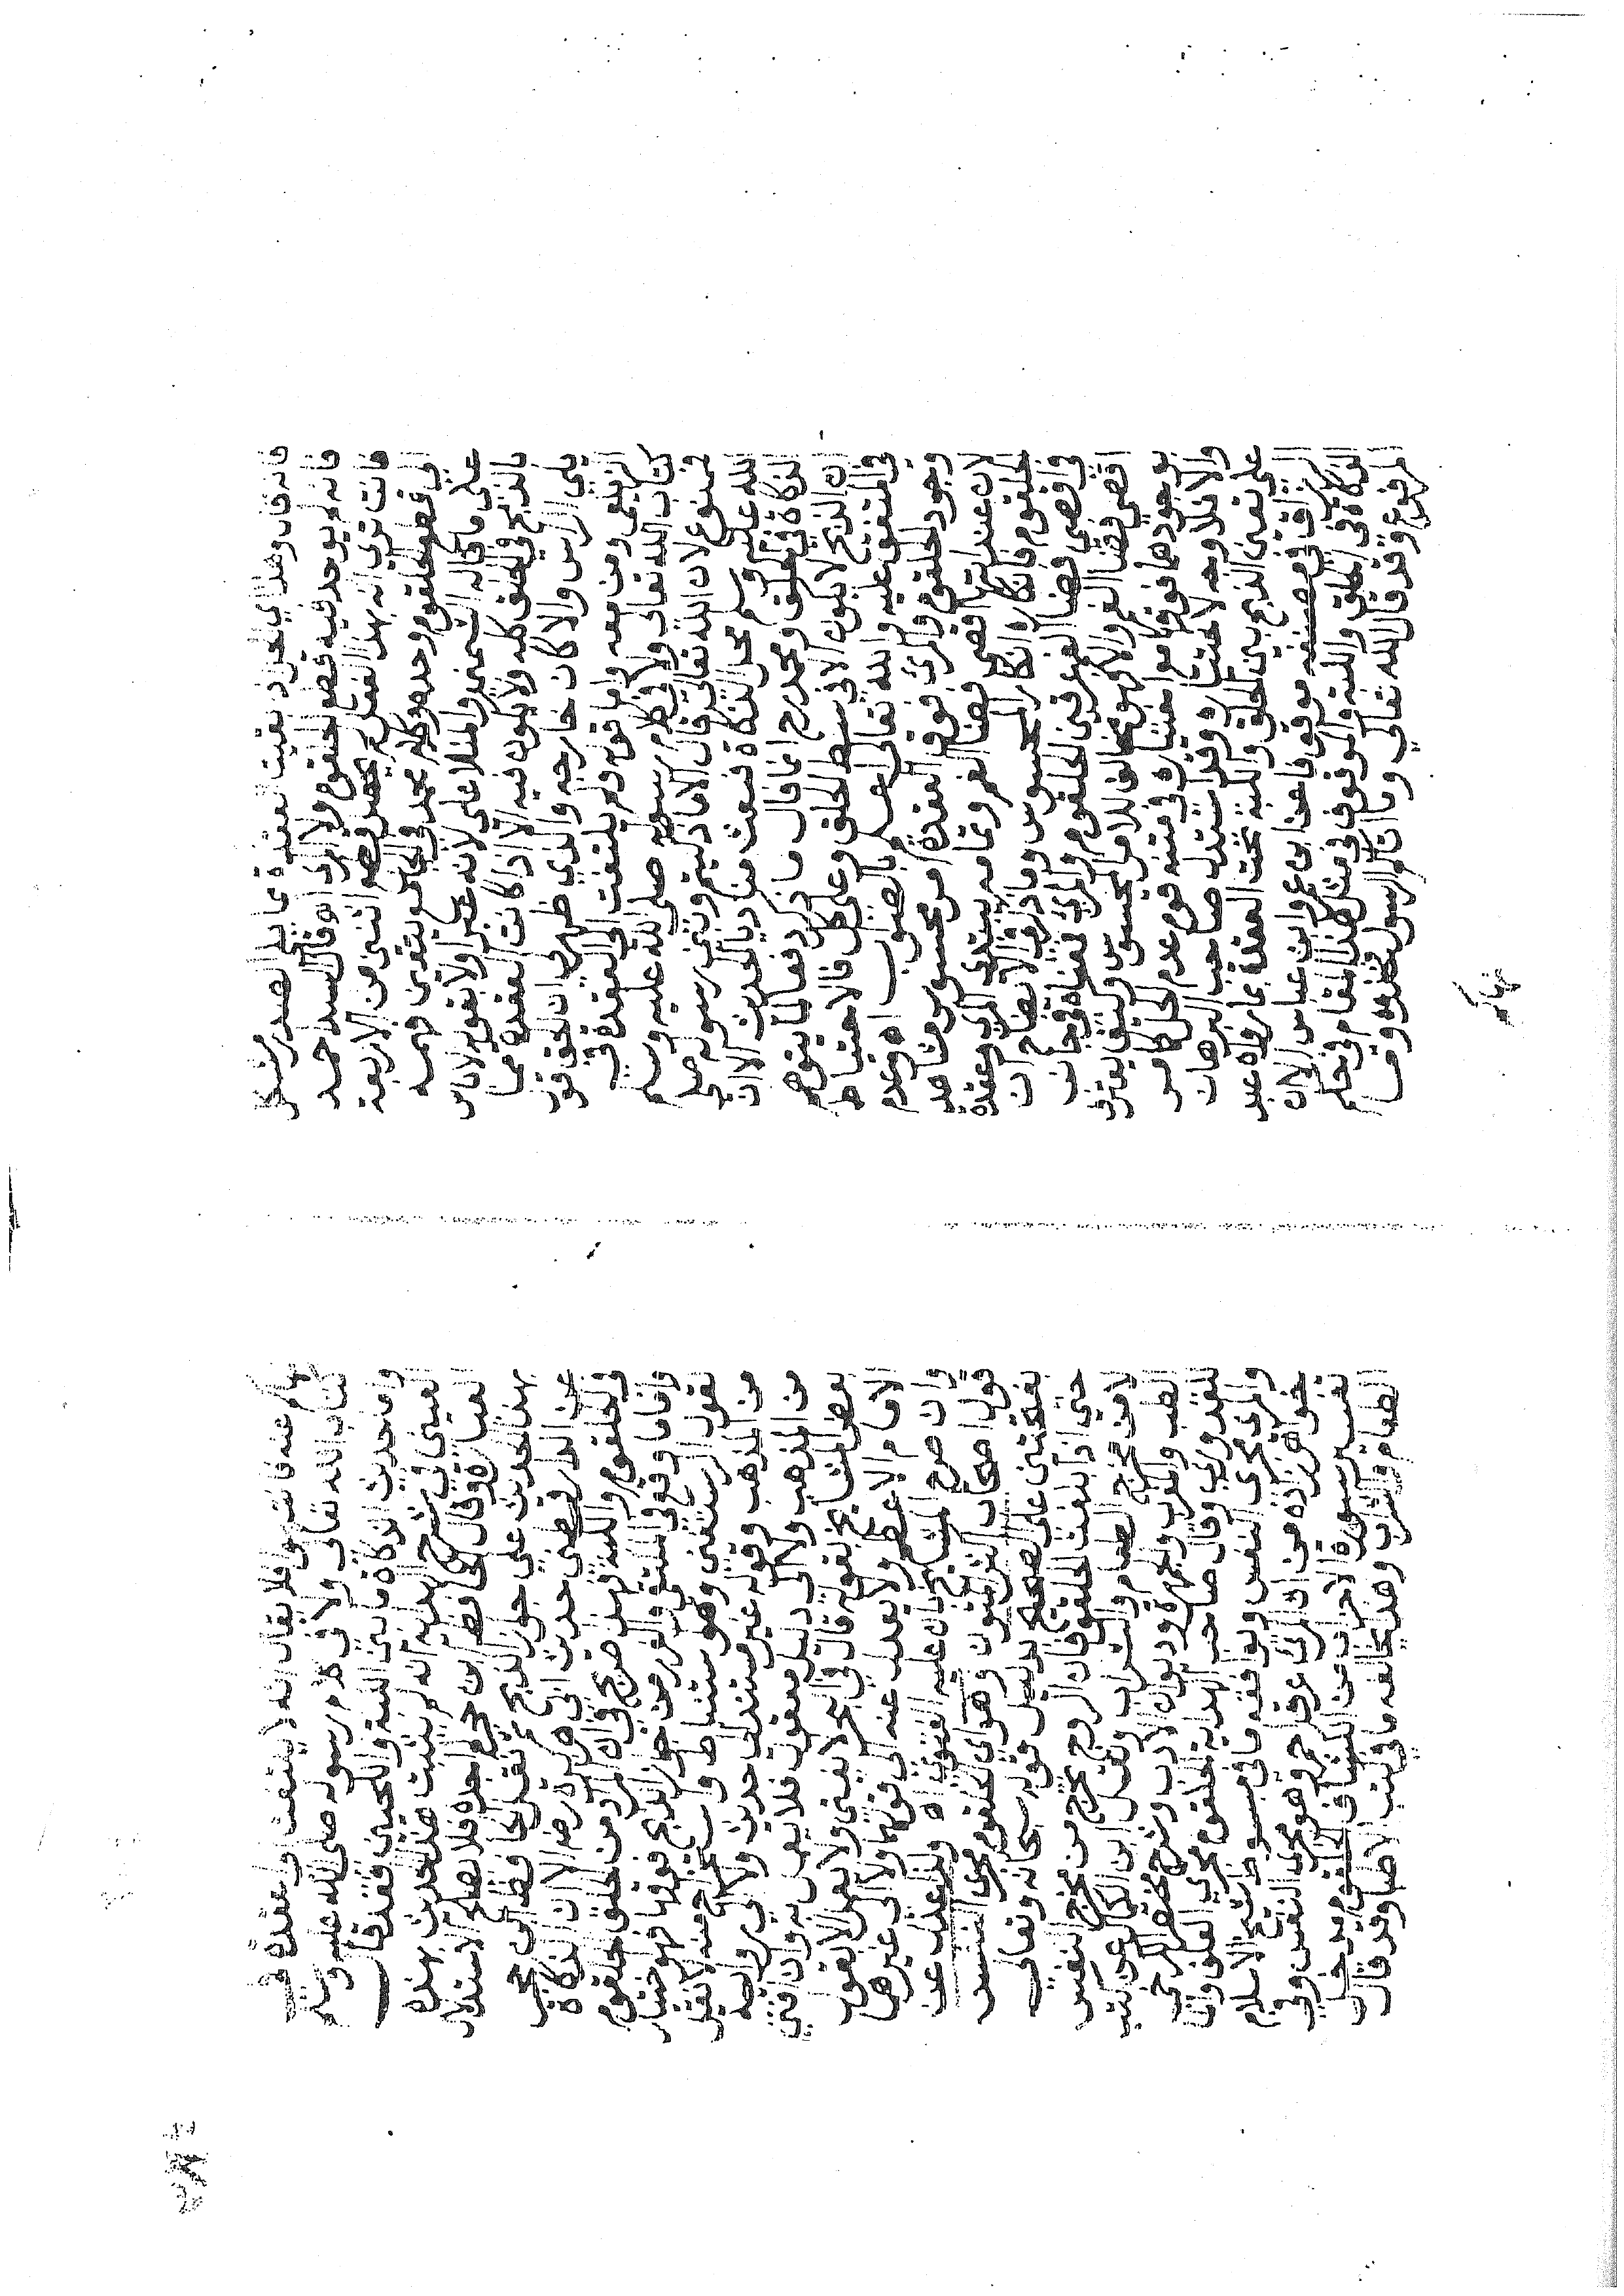 فانه قال وهذا اي الجواز اذ بقيت العقدة مما يلي الصدر مشكل
فانه لم يوجد فيه قطع الحلقوم ولا المرئ اه قال السيد احمد
فانت تري انه بهذا الفعل لم يحصل قطع اثنين من الاربعة
اي قطع الحلقوم وحده وكلام محمد في الجامع يتعدي فهمه
علي ما قاله الشمني والمنلا علي لانه عبر اولا بقوله لا باس
بالذبح في الحلق كله ولا يكون فيه الا اذا كانت العقدة مما
يلي الراس والا كان خارجه والذي ظهر لي ان الحق قول
الزيلعي ومن معه واما قوله ولم يلتفت الى العقدة في
كتاب الله تعالى ولا في كلام رسوله صلى الله عليه وسلم
فممنوع لان الله تعالي قال الا ما ذكيتم وبين رسوله صلى
الله عليه وسلم محل الذكاة فبعث مناديا الا ان
الذكاة في الحلق ومحمد رح انما قال ما ذكر دفعا لما يتوهم
ان الذبح لا يكون الا في وسط الحلق وعلى كل فالاحتياط
في المتفق عليه والله تعالى اعلم بالصواب اه وعدم
وجود الحلقوم والمرئ فوق العقدة امر محسوس مشاهد
لان عند انتها اقصى فضا الفم وتمامه يبتدى المرئ وعقدة
الحلقوم فانكاره انكار المحسوس ومما زاده الايضاح ان
في اقصي فضا الفم عرقين الحلقوم والمرئ
اقصي فضا الفم والا فهو مخالف للامر المحسوس وكيف يعترف
بوجودهما فوقها مع اختياره في متنه عدم الحل كما مر
والا فلا وجه لاختياره وقد استدل صاحب البرهان
علي تعين الذبح بين الحلق واللبة تحت العقدة بما رواه عبد
الرزاق في مصنفه موقوفا عن ابن عمر وابن عباس الا ان
الذكاة في الحلق واللبة والموقوف في مثل هذا المقام في حكم
المرفوع وقد قال الله تعالي وما اتاكم الرسول فخذوه وما
نهاكم
نهاكم عنه فانتهوا فلا يقال انه لا يلتفت الى العقدة في
كتاب الله تعالى ولا في كلام رسوله صلى الله عليه وسلم
واما حديث الذكاة ما بين اللبة واللحيين فقد قال
العيني في شرح الهداية انه لم يثبت هذا الحديث بهذه
العبارة وقال الحافظ ابن حجر لم اجده فلا يصلح الاستدلال
بهذا الحديث علي جواز الذبح ثم نقل الحافظ ابن حجر
عن الدارقطني حديث ابي هريرة رضه الا ان الذكاة
في الحلقوم واللبة فهذا صريح في ان المراد من الحلق الحلقوم
واما ما وقع في الملتقى والغرر من جواز الذبح فوقها فهو اختيار
لقول الرستغفني وهو استنباط واستخراج منه لا نقل
من المذهب وقوله غير مستند الي حديث ولا الي رواية
من المذهب ولا الي دليل معقول فلا يعمل به وان افتي
بعض المشايخ بقوله قال في البحر لا يفتي ولا يعمل الا بقول
الامام الاعظم ولا يعدل عنه الى قولهما ولا الى غيرهما
وان صرح المشايخ بان عليه الفتوي اه عن
قول اصحاب المتون وهو اي الحلقوم مجرى النفس
بفتحتين على الصحيح بدليل قوله سبحانه وتعالي
حتي اذا بلغت الحلقوم فان الروح يخرج من مخرج النفس
لا من مخرج الطعام والشراب ونقل ابن الكمال عن كتب
الطب والمغرب والجمهرة وديوان الادب وشرح مختصر الكرخي
للقدوري وقال صاحب الهداية الحلقوم مجري العلف والماء
والمرئ مجرى النفس ويوافقه ما في مبسوط شيخ الاسلام
خواهر زاده من ان المرئ عرق احمر وهو مجرى النفس وفي
تفسير سورة الاحزاب من الكشاف الحلقوم مدخل
الطعام والشراب وهذا يخالفه ما في كتب الاطبا وقد قال